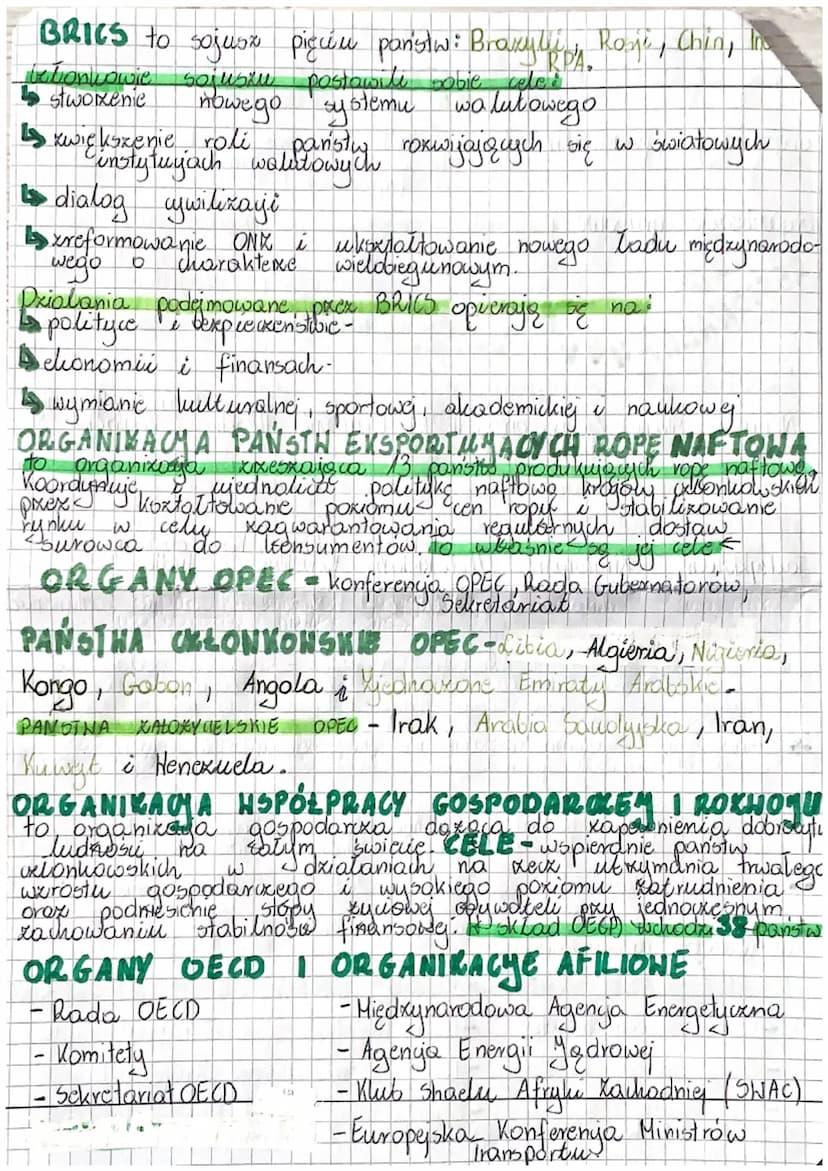 BRICS to sojusz pięciu państw: Brazylii, Rosji, Chin, In
RPA.
członkowie sojuszu postawili sobie cele:
↳ stworzenie nowego systemu walutowego
↳ zwiększenie roli państw rozwijających się w światowych
instytucjach walutowych
↳ dialog cywilizacji
↳ zreformowanie ONZ i ukształtowanie nowego ładu międzynarodo-
wego o charakterze wielobiegunowym.
Działania podejmowane przez BRICS opierają się na:
↳ polityce i bezpieczeństwie-
↳ ekonomii i finansach-
↳ wymianie kulturalnej, sportowej, akademickiej i naukowej
ORGANIZACJA PAŃSTW EKSPORTUJĄCYCH ROPĘ NAFTOWĄ
to organizacja zrzeszająca 13 państw produkujących ropę naftową.
Koordynuje i ujednolica politykę naftową krajów członkowskich
przez kształtowanie poziomu cen ropy i stabilizowanie
rynku w celu zagwarantowania regularnych dostaw
surowca do konsumentów. to właśnie są jej cele ←
ORGANY OPEC - konferencja OPEC, Rada Gubernatorów,
Sekretariat
PAŃSTWA CZŁONKOWSKIE OPEC - Libia, Algieria, Nigieria,
Kongo, Gabon, Angola i Zjednoczone Emiraty Arabskie-
PAŃSTWA ZAŁOŻYCIELSKIE OPEC - Irak, Arabia Saudyjska, Iran,
Kuwejt i Wenezuela.
ORGANIZACJA WSPÓŁPRACY GOSPODARCZEJ I ROZWOJU
to organizacja gospodarcza dążąca do zapewnienia dobrobytu
ludności na całym świecie. CELE - wspieranie państw
członkowskich w działaniach na rzecz utrzymania trwałego
wzrostu gospodarczego i wysokiego poziomu zatrudnienia
oraz podniesienie stopy życiowej obywateli przy jednoczesnym
zachowaniu stabilności finansowej. W skład OECD wchodzi 38 państw
ORGANY OECD I ORGANIZACJE AFILIONE
- Rada OECD
- Komitety
- Sekretariat OECD
- Międzynarodowa Agencja Energetyczna
- Agencja Energii Jądrowej
- Klub Shaelu Afryki Zachodniej (SWAC)
- Europejska Konferencja Ministrów
Transportu